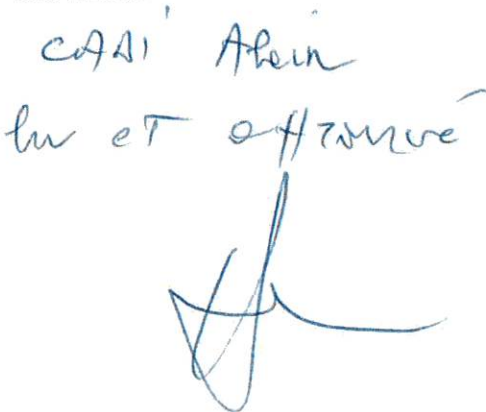 CABI Alain
lu et approuvé